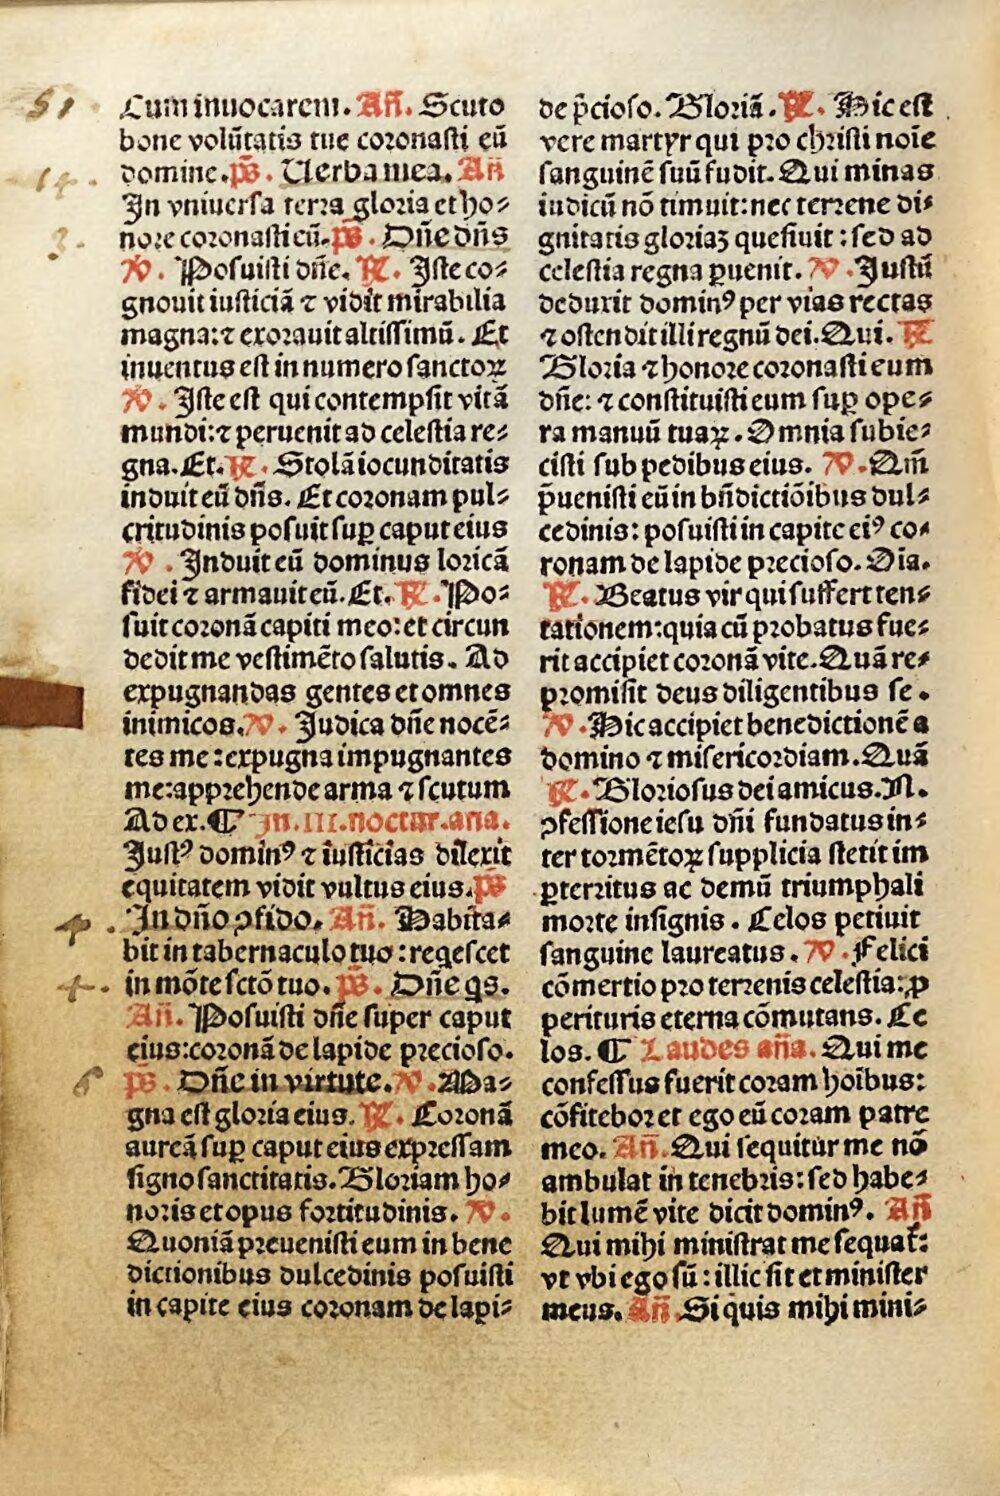 51.
Cum inuocarem. Añ. Scuto
bone volũtatis tue coronasti eũ
domine. p̃s. Uerba mea. Añ
14.
In vniuersa terra gloria et ho⸗
nore coronasti eũ. p̃s. Dñe dñs
3.
℣. Posuisti dñe. ℟. Iste co⸗
gnouit iusticiã ⁊ vidit mirabilia
magna:⁊ exorauit altissimũ. Et
inuentus est in numero sanctoꝝ
℣. Iste est qui contempsit vitã
mundi:⁊ peruenit ad celestia re⸗
gna. Et. ℟. Stolã iocunditatis
induit eũ dñs. Et coronam pul⸗
critudinis posuit suꝑ caput eius
℣. Induit eũ dominus loricã
fidei ⁊ armauit eũ. Et. ℟. Po⸗
suit coronã capiti meo: et circun
dedit me vestimẽto salutis. Ad
expugnandas gentes et omnes
inimicos. ℣. Iudica dñe nocẽ⸗
tes me: expugna impugnantes
me: apprehende arma ⁊ scutum
Ad ex. ¶ In .III. noctur. ana.
Justꝰ dominꝰ ⁊ iusticias dilexit
equitatem vidit vultus eius. p̃s
In dño ꝯfido. Añ. Habita⸗
bit in tabernaculo tuo: reqescet
in mõte sctõ tuo. p̃s. Dñe qs.
Añ. Posuisti dñe super caput
eius: coronã de lapide precioso.
6
p̃s. Dñe in virtute. ℣. Ma⸗
gna est gloria eius. ℟. Coronã
aureã suꝑ caput eius expressam
signo sanctitatis. Gloriam ho⸗
noris et opus fortitudinis. ℣.
Quoniã preuenisti eum in bene
dictionibus dulcedinis posuisti
in capite eius coronam de lapi⸗
de p̃cioso. Gloriã. ℟. Hic est
vere martyr qui pro christi noĩe
sanguinẽ suũ fudit. Qui minas
iudicũ nõ timuit: nec terrene di⸗
gnitatis gloriaꝫ quesiuit: sed ad
celestia regna ꝑuenit. ℣. Justũ
deduxit dominꝰ per vias rectas
⁊ ostendit illi regnũ dei. Qui. ℟
Gloria ⁊ honore coronasti eum
dñe: ⁊ constituisti eum suꝑ ope⸗
ra manuũ tuaꝝ. Omnia subie⸗
cisti sub pedibus eius. ℣. Qm̃
p̃uenisti eũ in bñdictiõibus dul⸗
cedinis: posuisti in capite eiꝰ co⸗
ronam de lapide precioso. Oia.
℟. Beatus vir qui suffert ten⸗
tationem: quia cũ probatus fue⸗
rit accipiet coronã vite. Quã re⸗
promisit deus diligentibus se.
℣. Hic accipiet benedictionẽ a
domino ⁊ misericordiam. Quã
℟. Gloriosus dei amicus. N.
ꝯfessione iesu dñi fundatus in⸗
ter tormẽtoꝝ supplicia stetit im
ꝑterritus ac demũ triumphali
morte insignis. Celos petiuit
sanguine laureatus. ℣. Felici
cõmertio pro terrenis celestia: ꝓ
perituris eterna cõmutans. Ce
los. ¶ Laudes aña. Qui me
confessus fuerit coram hoĩbus:
cõfitebor et ego eũ coram patre
meo. Añ. Qui sequitur me nõ
ambulat in tenebris: sed habe⸗
bit lumẽ vite dicit dominꝰ. Añ
Qui mihi ministrat me sequat̃:
vt vbi ego sũ: illic sit et minister
meus. Añ. Si quis mihi mini⸗